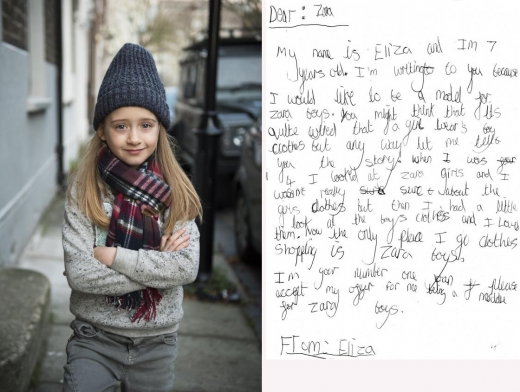 Dear: Zara
My name is Eliza and Im 7
years old. I'm writing to you because
I would like to be a model for
zara boys. You might think that its
quite weird that a girl wear's boy
clothes but any way let me tell
you the story. when I was your
4 I looked at zara girls and I
wasn't really sure about the
girls clothes but then I had a little
look at the boys clothes and I Love
them. Now the only place I go clothes
shopping is Zara boys.
I'm your number one fan please
accept my offer for me being a model
for zara boys.
From: Eliza